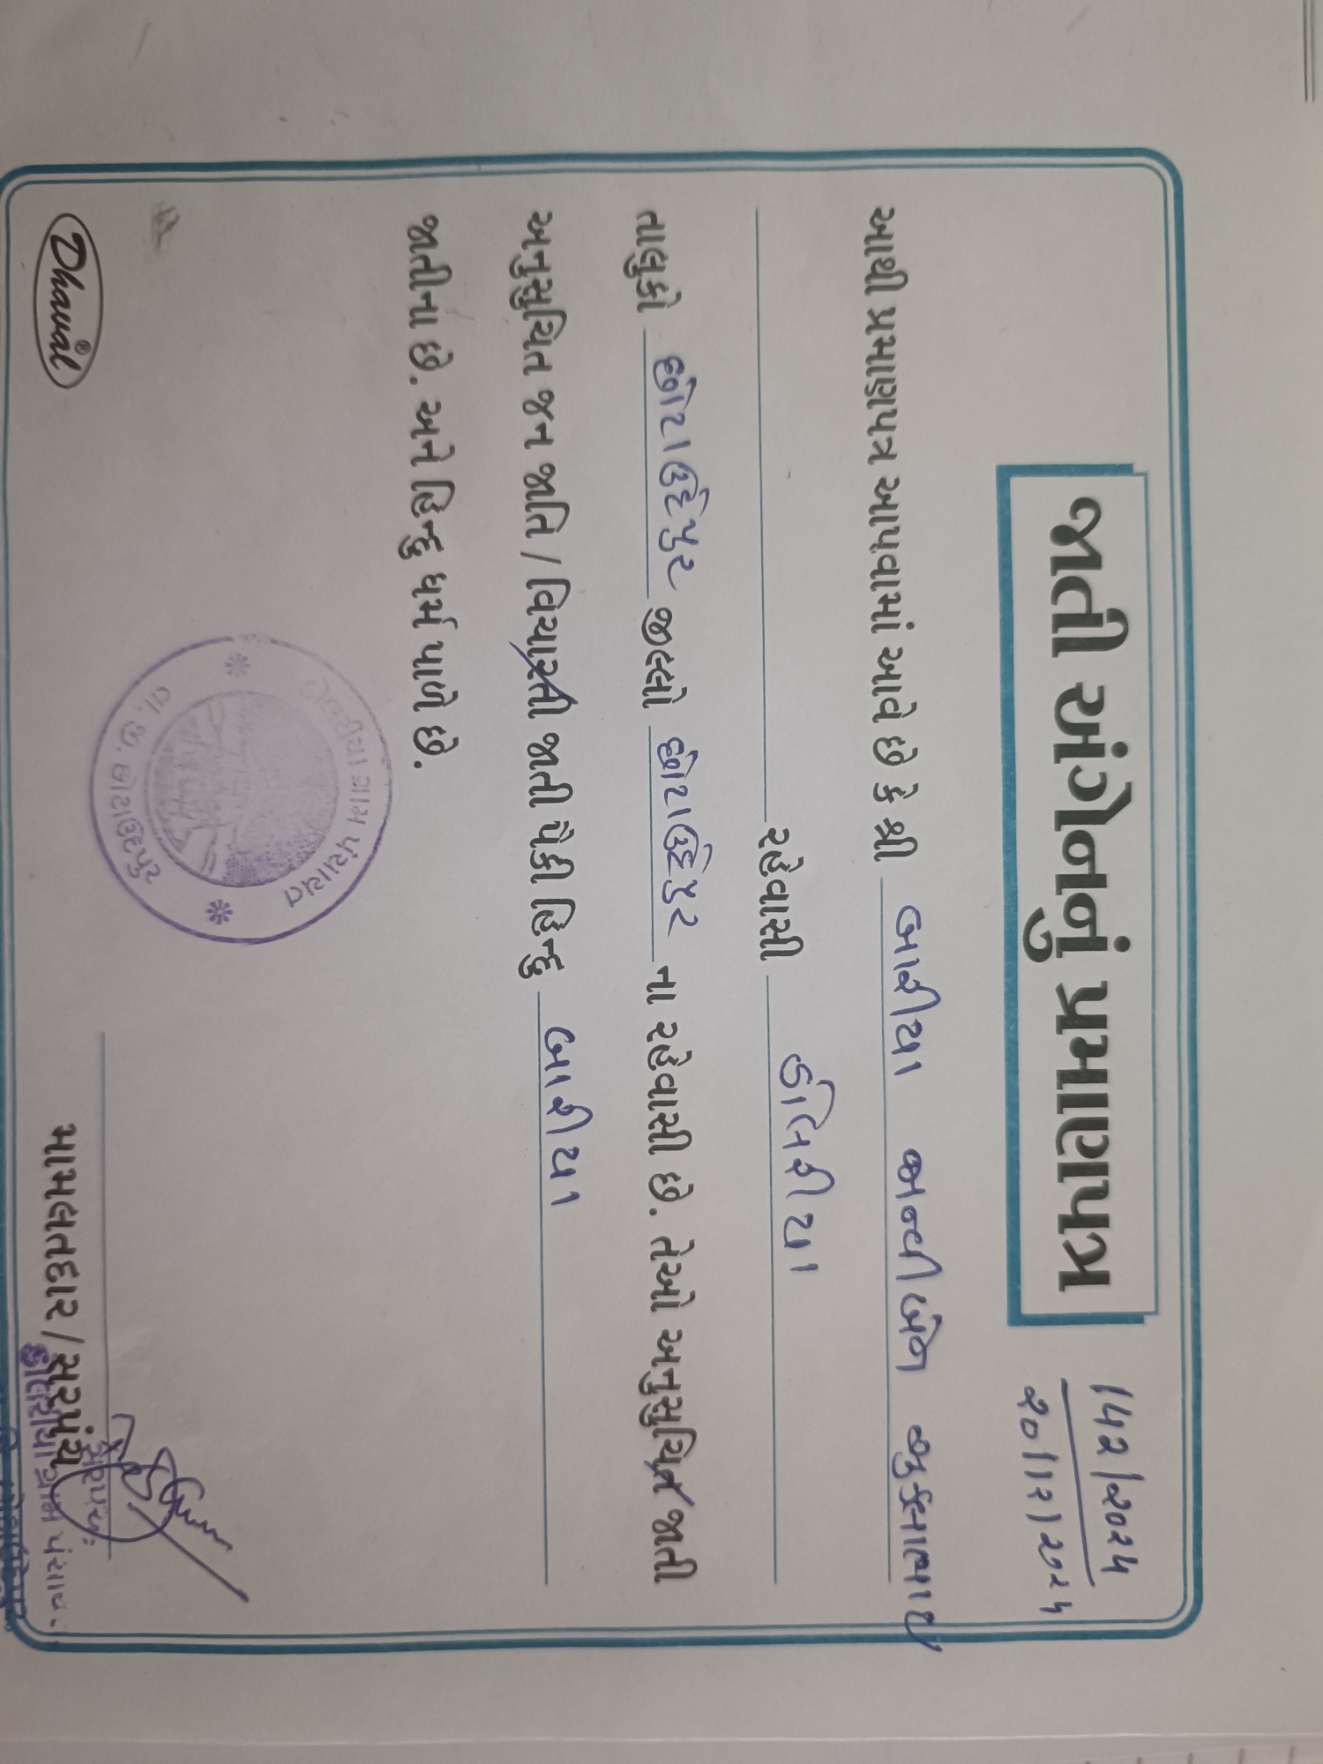 જાતી અંગેનનું પ્રમાણપત્ર
૧૫૨/૨૦૨૫
૨૦/૧૨/૨૦૨૫
આથી પ્રમાણપત્ર આપવામાં આવે છે કે શ્રી બારીયા
રહેવાસી
તાલુકો છોટાઉદેપુર જીલ્લો છોટાઉદેપુર ના રહેવાસી છે. તેઓ અનુસુચિત જાતી
અનુસુચિત જન જાતિ / વિચારતી જાતી પૈકી હિન્દુ બારીયા
જાતીના છે. અને હિન્દુ ધર્મ પાળે છે.
ગ્રામ પંચાયત
તા. જી. છોટાઉદેપુર
મામલતદાર / સરપંચ
સરપંચ
ગ્રામ પંચાયત
Dhawal®